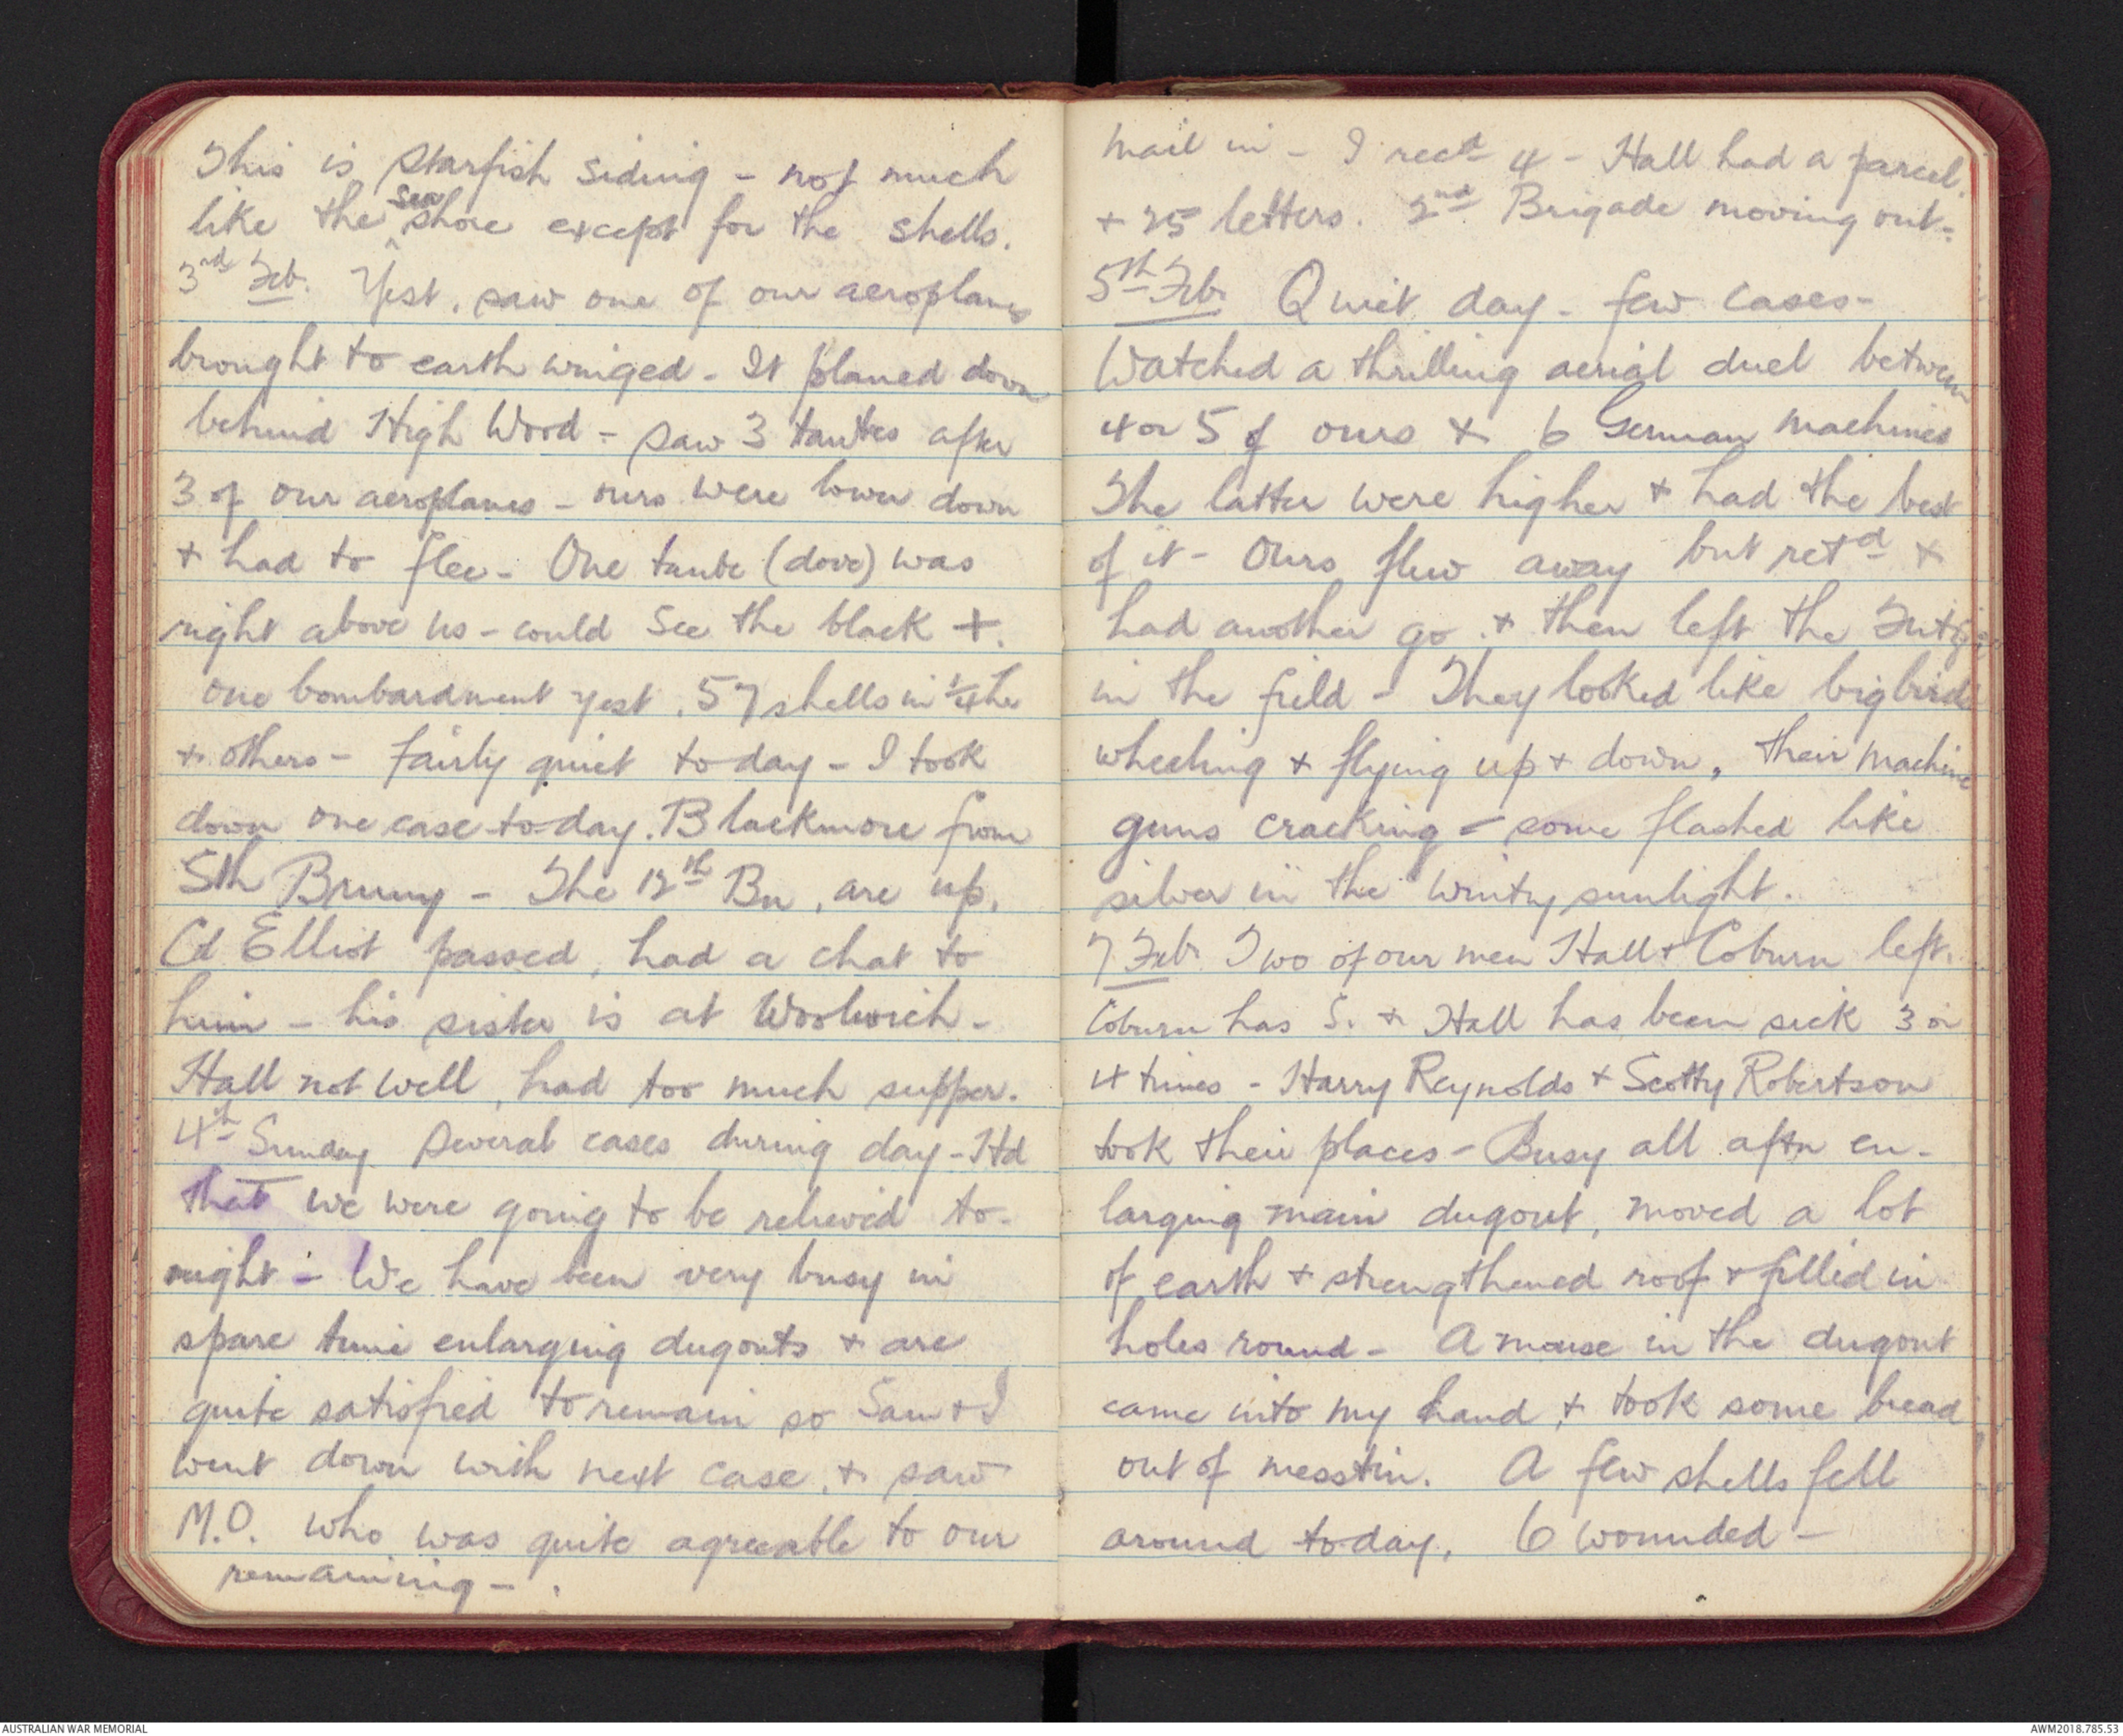 This is Starfish Siding - not much
like the sea shore except for the shells.
3rd Feb. Yest. saw one of our aeroplanes
brought to earth winged - It planed down
behind High Wood - saw 3 taubes after
3 of our aeroplanes - ours were lower down
+ had to flee - One taube (dove) was
right above us - could see the black +.
One bombardment yest. 57 shells in 1/4 hr
+ others - fairly quiet today - I took
down one case today. Blackmore from
Sth Bruny - The 12th Bn, are up.
Cd Elliot passed, had a chat to
him - his sister is at Woolwich -
Hall not well, had too much supper.
4th Sunday Several cases during day - Hd
that we were going to be relieved to-
night - We have been very busy in
spare time enlarging dugouts + are
quite satisfied to remain so Sam + I
went down with next case, + saw
M.O. who was quite agreeable to our
remaining - .
Mail in - I recd 4 - Hall had a parcel.
+ 25 letters. 2nd Brigade moving out -
5th Feb. Quiet day - few cases -
Watched a thrilling aerial duel between
4 or 5 of ours + 6 German machines
The latter were higher + had the best
of it - Ours flew away but retd +
had another go + then left the
in the field - They looked like big birds
wheeling + flying up + down, their machine
guns cracking - some flashed like
silver in the wintry sunlight.
7 Feb. Two of our men Hall + Coburn left.
Coburn has S. + Hall has been sick 3 or
4 times - Harry Reynolds + Scotty Robertson
took their places - Busy all aftn en-
larging main dugout, moved a lot
of earth + strengthened roof + filled in
holes round - A mouse in the dugout
came into my hand + took some bread
out of messtin. A few shells fell
around today, 6 wounded -
AUSTRALIAN WAR MEMORIAL
AWM2018.785.53